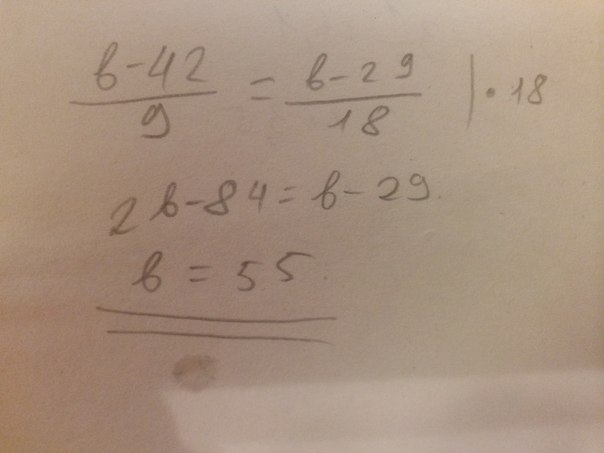 (b-42)/9 = (b-29)/18 | • 18
2b-84 = b-29.
b = 55.